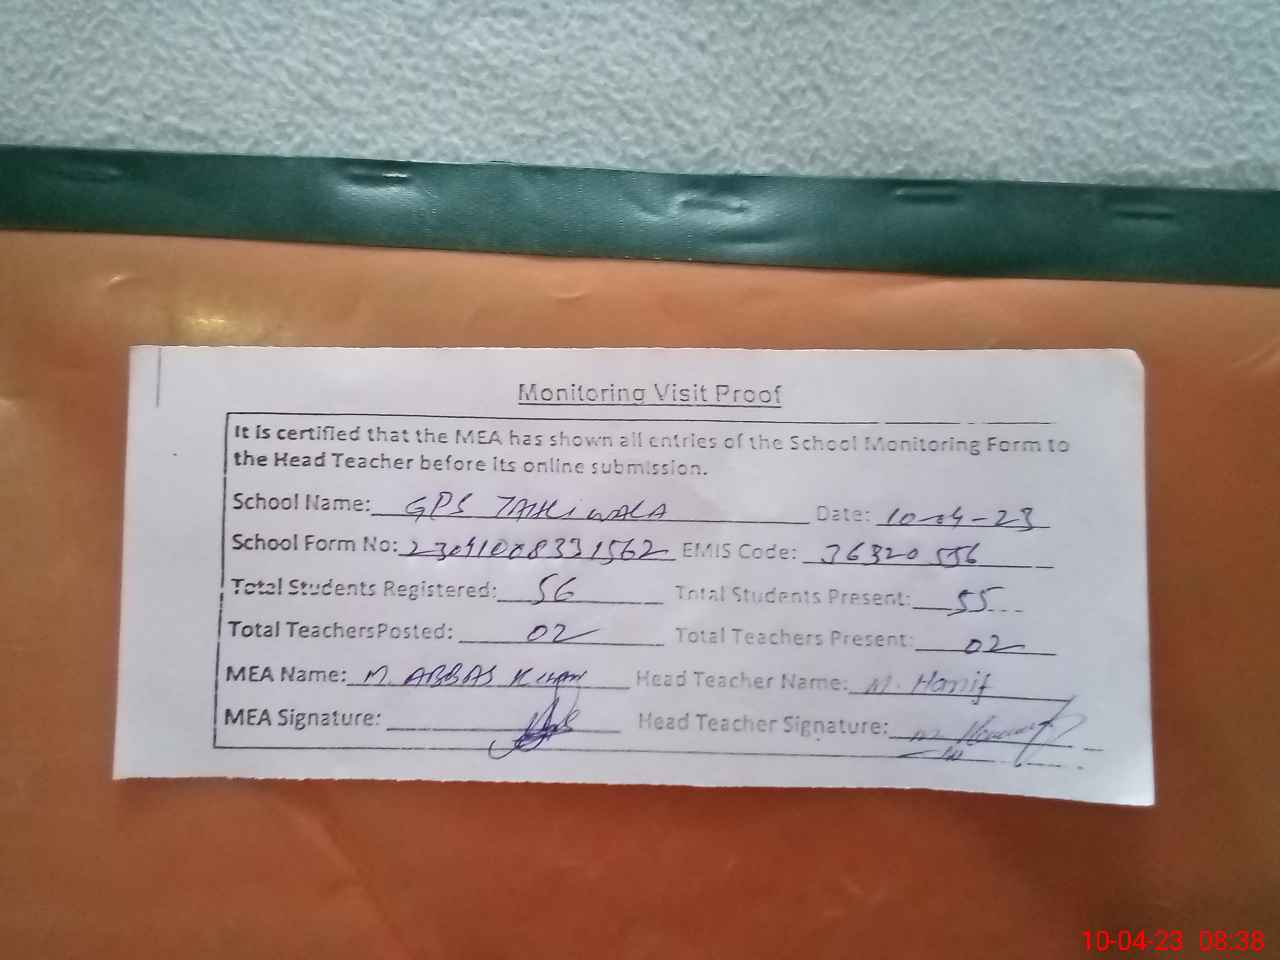 Monitoring Visit Proof
It is certified that the MEA has shown all entries of the School Monitoring Form to
the Head Teacher before its online submission.
School Name: GPS Date: 10-04-23
School Form No: 23041008331562 EMIS Code: 36320556
Total Students Registered: 56 Total Students Present: 55
Total TeachersPosted: 02 Total Teachers Present: 02
MEA Name: M. ABBAS KHAN Head Teacher Name: M. Hanif
MEA Signature: Head Teacher Signature:
10-04-23 08:38